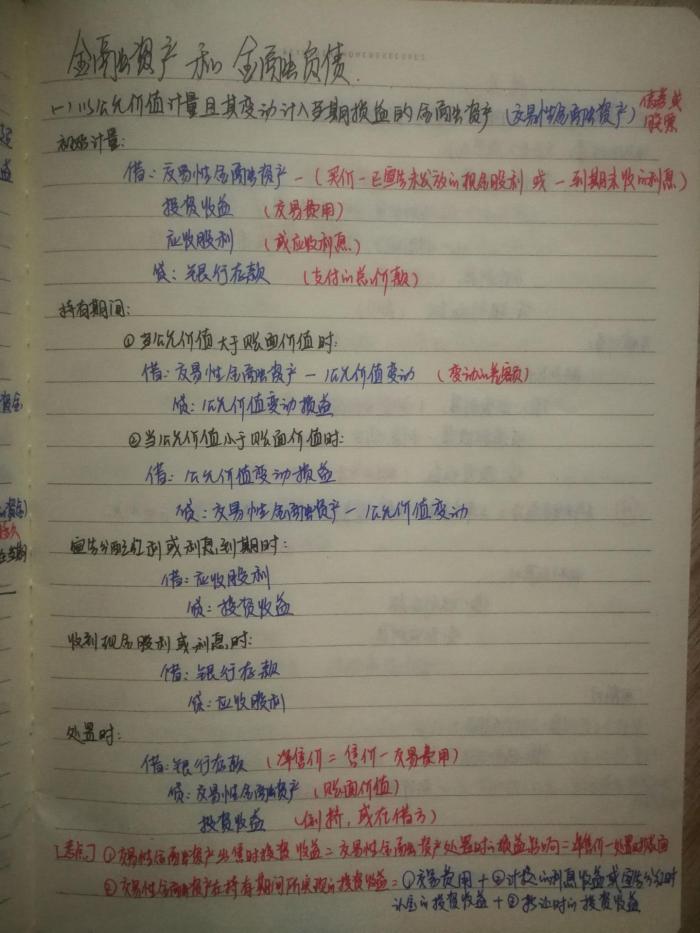 金融资产和金融负债.
一)以公允价值计量且其变动计入当期损益的金融资产(交易性金融资产)债券或股票
初始计量:
借:交易性金融资产-(买价-已宣告未发放的现金股利或-到期未收的利息)
投资收益 (交易费用)
应收股利 (或应收利息)
贷:银行存款 (支付的总价款)
持有期间:
①当公允价值大于账面价值时:
借:交易性金融资产-公允价值变动 (变动的差额)
贷:公允价值变动损益
②当公允价值小于账面价值时:
借:公允价值变动损益
贷:交易性金融资产-公允价值变动
宣告分配红利或利息到期时:
借:应收股利
贷:投资收益
收到现金股利或利息时:
借:银行存款
贷:应收股利
处置时:
借:银行存款 (净售价=售价-交易费用)
贷:交易性金融资产 (账面价值)
投资收益 (倒挤,或在借方)
[考点]①交易性金融资产出售时投资收益=交易性金融资产处置时的损益影响=净售价-处置时账面
②交易性金融资产在持有期间所实现的投资收益=①交易费用+②计提的利息收益或宣告分红时
认定的投资收益+③转让时的投资收益